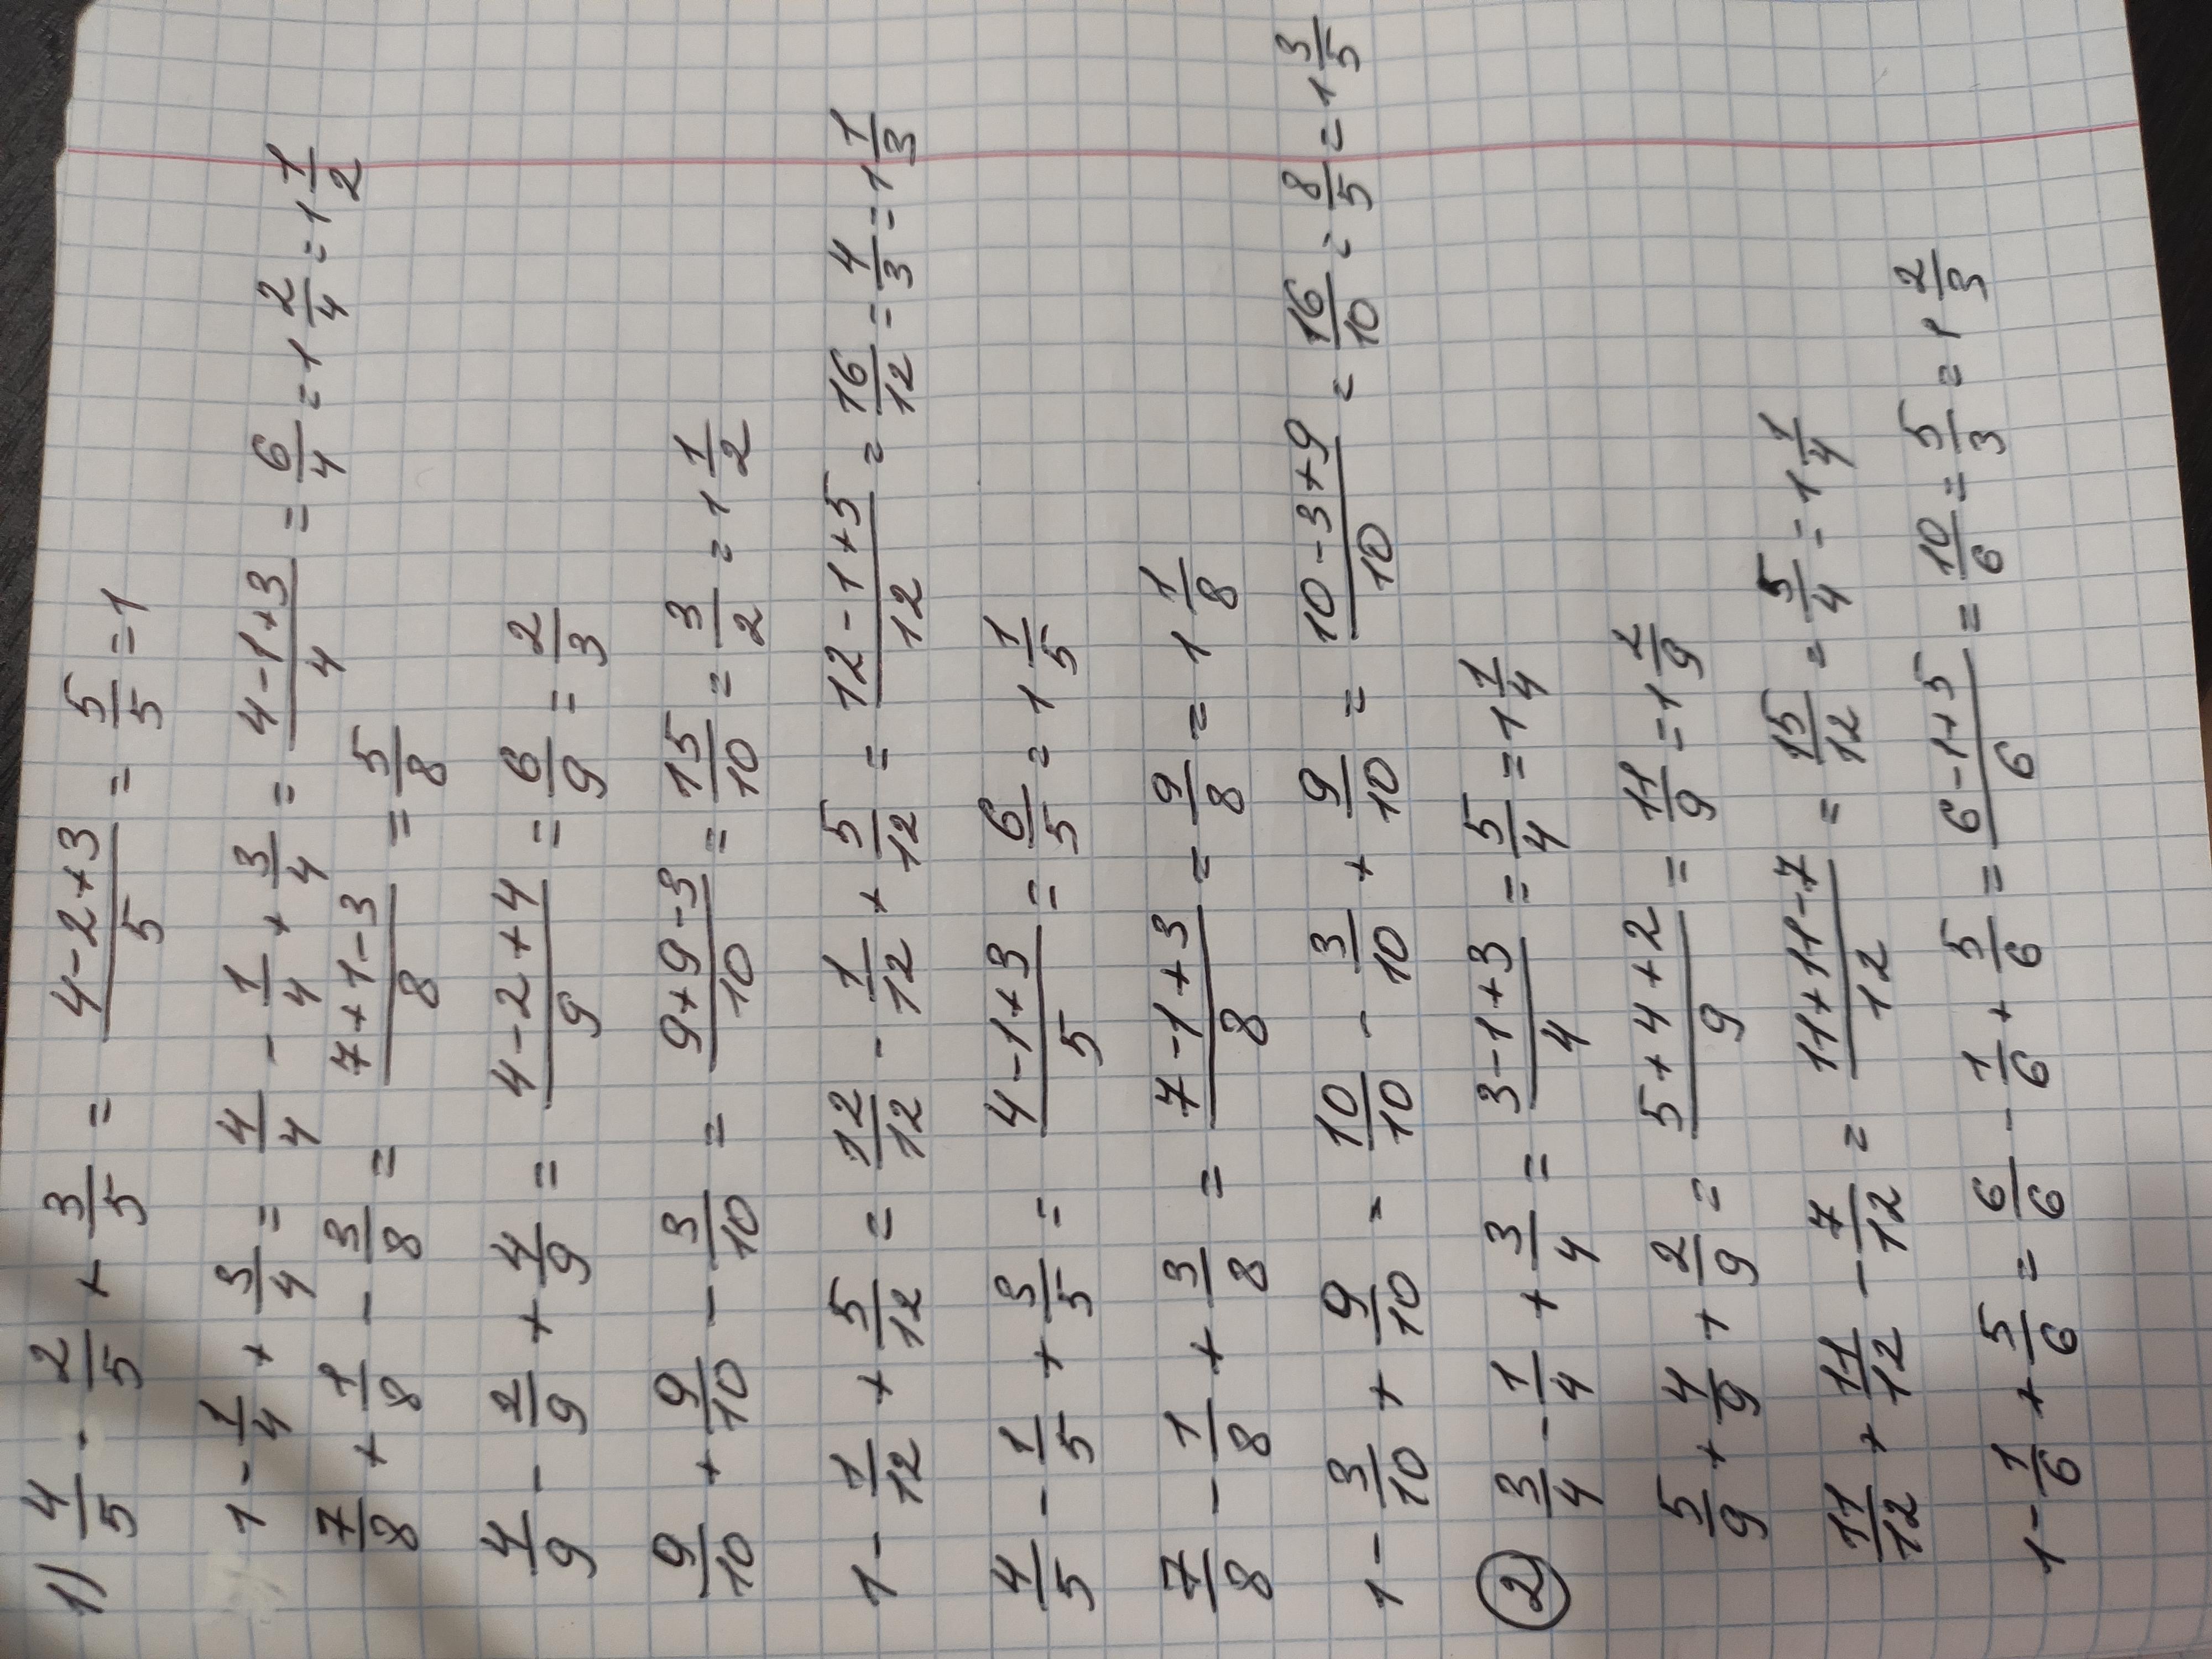 1) 4/5 - 2/5 + 3/5 = (4-2+3)/5 = 5/5 = 1
1 - 1/4 + 3/4 = 4/4 - 1/4 + 3/4 = (4-1+3)/4 = 6/4 = 1 2/4 = 1 1/2
7/8 + 1/8 - 3/8 = (7+1-3)/8 = 5/8
4/9 - 2/9 + 4/9 = (4-2+4)/9 = 6/9 = 2/3
9/10 + 9/10 - 3/10 = (9+9-3)/10 = 15/10 = 3/2 = 1 1/2
1 - 1/12 + 5/12 = 12/12 - 1/12 + 5/12 = (12-1+5)/12 = 16/12 = 4/3 = 1 1/3
4/5 - 1/5 + 3/5 = (4-1+3)/5 = 6/5 = 1 1/5
7/8 - 1/8 + 3/8 = (7-1+3)/8 = 9/8 = 1 1/8
1 - 3/10 + 9/10 = 10/10 - 3/10 + 9/10 = (10-3+9)/10 = 16/10 = 8/5 = 1 3/5
2 3/4 - 1/4 + 3/4 = (3-1+3)/4 = 5/4 = 1 1/4
5/9 + 4/9 + 2/9 = (5+4+2)/9 = 11/9 = 1 2/9
11/12 + 11/12 - 7/12 = (11+11-7)/12 = 15/12 = 5/4 = 1 1/4
1 - 1/6 + 5/6 = 6/6 - 1/6 + 5/6 = (6-1+5)/6 = 10/6 = 5/3 = 1 2/3